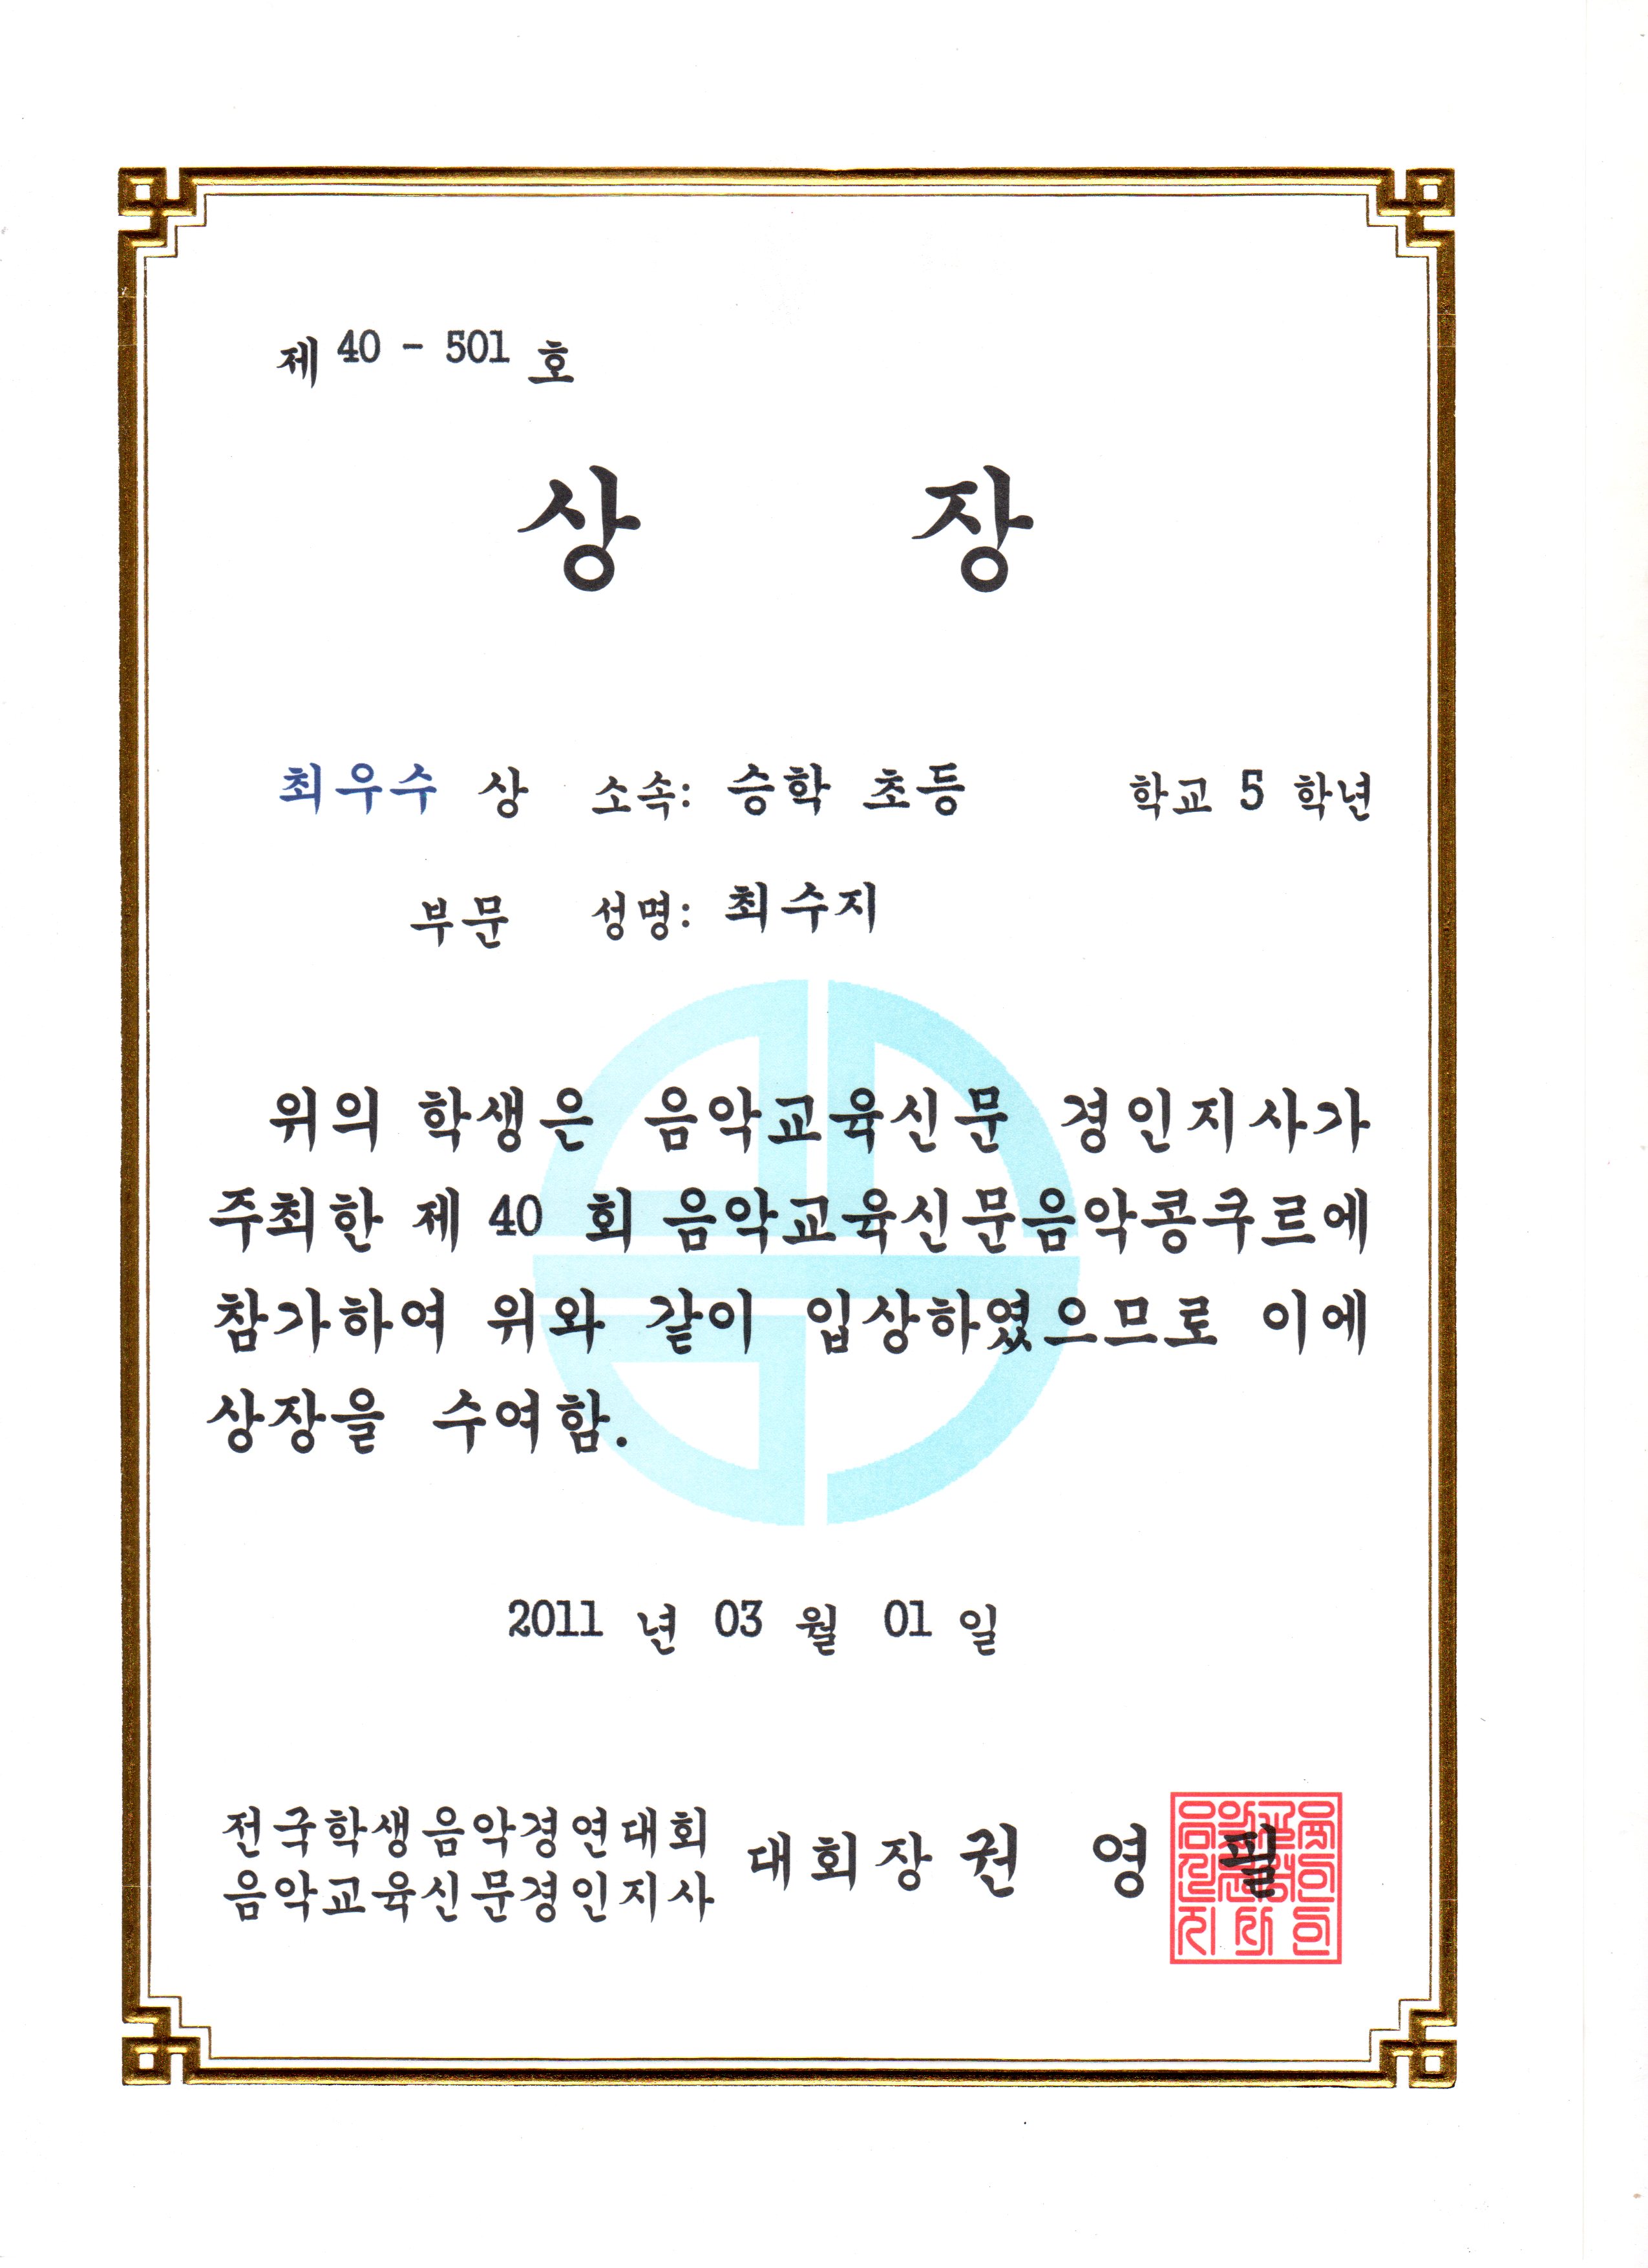 제 40 - 501 호
상 장
최우수 상 소속: 승학 초등 학교 5 학년
부문 성명: 최수지
위의 학생은 음악교육신문 경인지사가
주최한 제 40 회 음악교육신문음악콩쿠르에
참가하여 위와 같이 입상하였으므로 이에
상장을 수여함.
2011 년 03 월 01 일
전국학생음악경연대회
음악교육신문경인지사
대회장 권 영 필